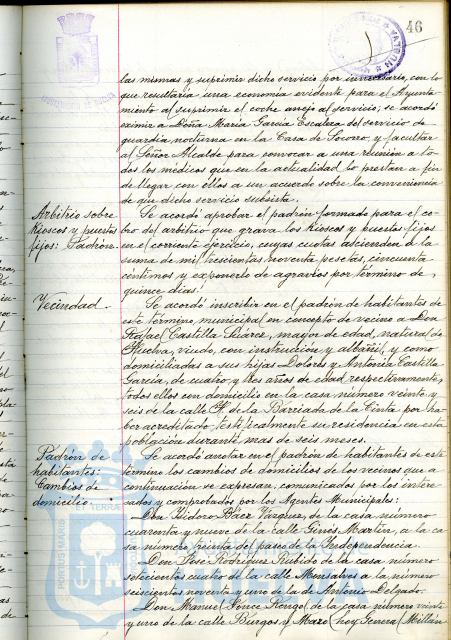 46
las mismas y suprimir dicho servicio por innecesario, con lo
que resultaría una economía evidente para el Ayunta-
miento al suprimir el coche anejo al servicio; se acordó
eximir a Doña María García Escalera del servicio de
guardia nocturna en la Casa de Socorro, y facultar
al Señor Alcalde para convocar a una reunión a to-
dos los médicos que en la actualidad lo prestan a fin
de llegar con ellos a un acuerdo sobre la conveniencia
de que dicho servicio subsista.
Arbitrio sobre
Kioscos y puestos
fijos: Padrón.
Se acordó aprobar el padrón formado para el co-
bro del arbitrio que grava los Kioscos y puestos fijos
en el corriente ejercicio, cuyas cuotas ascienden a la
suma de mil trescientas noventa pesetas, cincuenta
céntimos y exponerlo de agravios por término de
quince días.
Vecindad.
Se acordó inscribir en el padrón de habitantes de
este término municipal en concepto de vecino a Don
Rafael Castilla Suárez, mayor de edad, natural de
Huelva, viudo, con instrucción y albañil, y como
domiciliadas a sus hijas Dolores y Antonia Castilla
García, de cuatro y tres años de edad respectivamente,
todos ellos con domicilio en la casa número veinte y
seis de la calle de la Barriada de la Cinta por ha-
ber acreditado testificalmente su residencia en esta
población durante mas de seis meses.
Padrón de
habitantes:
Cambios de
domicilio.
Se acordó anotar en el padrón de habitantes de este
término los cambios de domicilios de los vecinos que a
continuación se expresan, comunicados por los intere-
sados y comprobados por los Agentes Municipales:
Don Isidoro Báez Vázquez, de la casa número
cuarenta y nueve de la calle Ginés Martín, a la ca-
sa número treinta del paseo de la Independencia.
Don José Rodríguez Rubido de la casa número
setecientos cuatro de la calle Mensalves a la número
seiscientos noventa y uno de la de Antonio Delgado.
Don Manuel Ponce Rengo, de la casa número veinte
y uno de la calle Burgos y Mazo (hoy General Millán
PORTUS MARIS
TERRAE